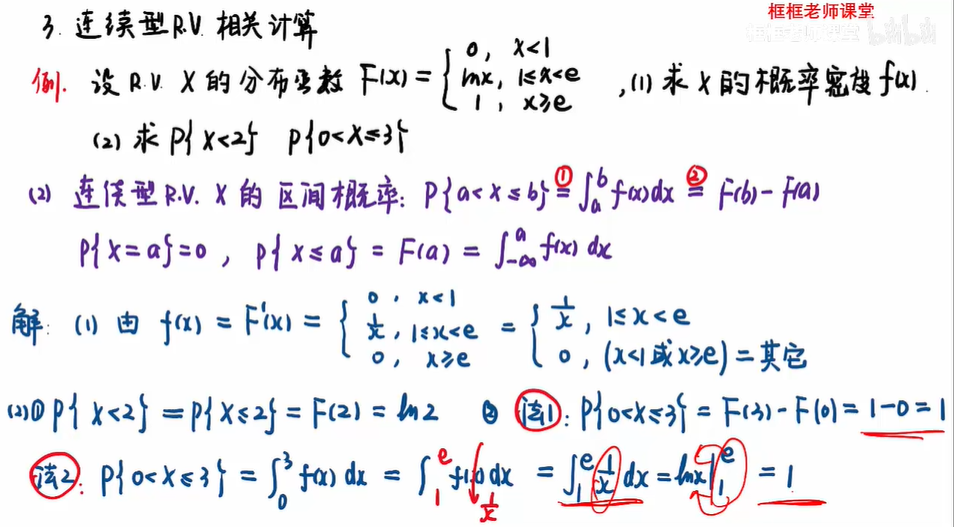 框框老师课堂
3. 连续型R.V. 相关计算
例. 设 R.V. X 的分布函数 F(x) = { 0, x<1
lnx, 1≤x<e
1, x≥e
,(1) 求 X 的概率密度 f(x).
(2) 求 P{X<2} P{0<X≤3}
(2) 连续型R.V. X 的 区间概率: P{a<X≤b} ①= ∫_a^b f(x)dx ②= F(b) - F(a)
P{X=a}=0, P{X≤a} = F(a) = ∫_{-∞}^a f(x) dx
解: (1) 由 f(x) = F'(x) = { 0, x<1
1/x, 1≤x<e
0, x≥e
= { 1/x, 1≤x<e
0, (x<1或x≥e) = 其它
(2)① P{X<2} = P{X≤2} = F(2) = ln2 ② 法1: P{0<X≤3} = F(3) - F(0) = 1-0 = 1
法2: P{0<X≤3} = ∫_0^3 f(x) dx = ∫_1^e f(x) dx = ∫_1^e 1/x dx = lnx|_1^e = 1
1/x